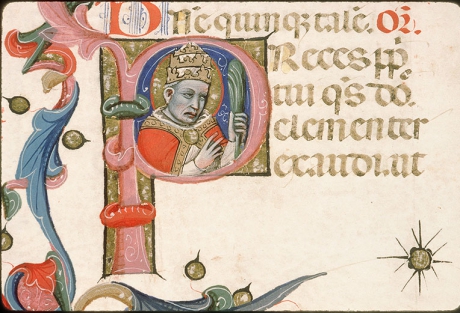 Disse quinqz tale. Or.
Preces ppl
tui qs dne
clementer
exaudi. ut